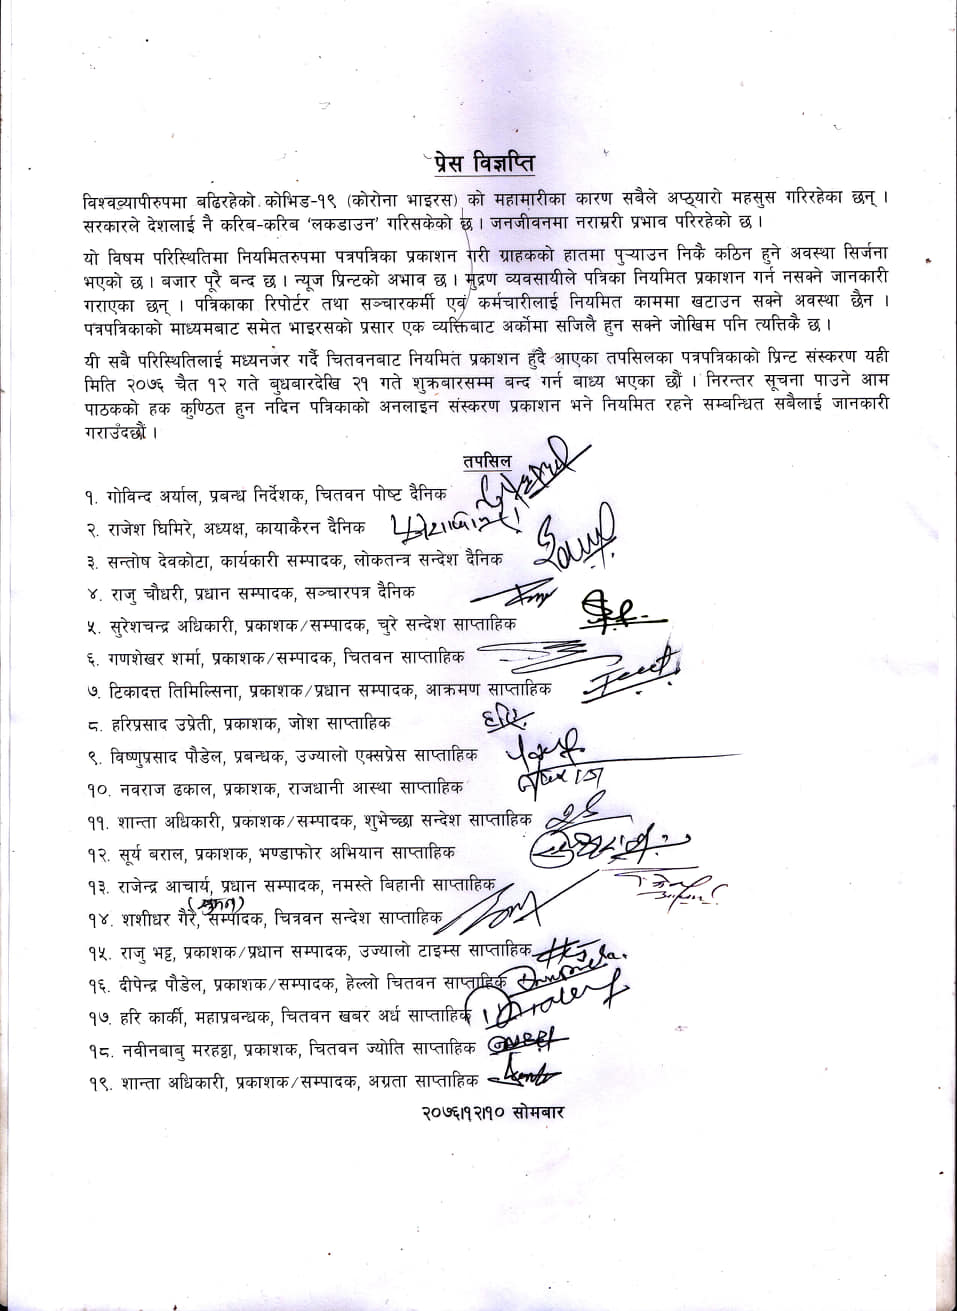 प्रेस विज्ञप्ति
विश्वव्यापीरुपमा बढिरहेको कोभिड-१९ (कोरोना भाइरस) को महामारीका कारण सबैले अप्ठ्यारो महसुस गरिरहेका छन् ।
सरकारले देशलाई नै करिब-करिब ‘लकडाउन’ गरिसकेको छ । जनजीवनमा नराम्ररी प्रभाव परिरहेको छ ।
यो विषम परिस्थितिमा नियमितरुपमा पत्रपत्रिका प्रकाशन गरी ग्राहकको हातमा पुऱ्याउन निकै कठिन हुने अवस्था सिर्जना
भएको छ । बजार पूरै बन्द छ । न्यूज प्रिन्टको अभाव छ । मुद्रण व्यवसायीले पत्रिका नियमित प्रकाशन गर्न नसक्ने जानकारी
गराएका छन् । पत्रिकाका रिपोर्टर तथा सञ्चारकर्मी एवं कर्मचारीलाई नियमित काममा खटाउन सक्ने अवस्था छैन ।
पत्रपत्रिकाको माध्यमबाट समेत भाइरसको प्रसार एक व्यक्तिबाट अर्कोमा सजिलै हुन सक्ने जोखिम पनि त्यत्तिकै छ ।
यी सबै परिस्थितिलाई मध्यनजर गर्दै चितवनबाट नियमित प्रकाशन हुँदै आएका तपसिलका पत्रपत्रिकाको प्रिन्ट संस्करण यही
मिति २०७६ चैत १२ गते बुधबारदेखि २१ गते शुक्रबारसम्म बन्द गर्न बाध्य भएका छौं । निरन्तर सूचना पाउने आम
पाठकको हक कुण्ठित हुन नदिन पत्रिकाको अनलाइन संस्करण प्रकाशन भने नियमित रहने सम्बन्धित सबैलाई जानकारी
गराउँदछौं ।
तपसिल
१. गोविन्द अर्याल, प्रबन्ध निर्देशक, चितवन पोष्ट दैनिक
२. राजेश घिमिरे, अध्यक्ष, कायाकैरन दैनिक
३. सन्तोष देवकोटा, कार्यकारी सम्पादक, लोकतन्त्र सन्देश दैनिक
४. राजु चौधरी, प्रधान सम्पादक, सञ्चारपत्र दैनिक
५. सुरेशचन्द्र अधिकारी, प्रकाशक/सम्पादक, चुरे सन्देश साप्ताहिक
६. गणशेखर शर्मा, प्रकाशक/सम्पादक, चितवन साप्ताहिक
७. टिकादत्त तिमिल्सिना, प्रकाशक/प्रधान सम्पादक, आक्रमण साप्ताहिक
८. हरिप्रसाद उप्रेती, प्रकाशक, जोश साप्ताहिक
९. विष्णुप्रसाद पौडेल, प्रबन्धक, उज्यालो एक्सप्रेस साप्ताहिक
१०. नवराज ढकाल, प्रकाशक, राजधानी आस्था साप्ताहिक
११. शान्ता अधिकारी, प्रकाशक/सम्पादक, शुभेच्छा सन्देश साप्ताहिक
१२. सूर्य बराल, प्रकाशक, भण्डाफोर अभियान साप्ताहिक
१३. राजेन्द्र आचार्य, प्रधान सम्पादक, नमस्ते बिहानी साप्ताहिक
१४. शशीधर गैरे, सम्पादक, चित्रवन सन्देश साप्ताहिक
१५. राजु भट्ट, प्रकाशक/प्रधान सम्पादक, उज्यालो टाइम्स साप्ताहिक
१६. दीपेन्द्र पौडेल, प्रकाशक/सम्पादक, हेल्लो चितवन साप्ताहिक
१७. हरि कार्की, महाप्रबन्धक, चितवन खबर अर्ध साप्ताहिक
१८. नवीनबाबु मरहठ्ठा, प्रकाशक, चितवन ज्योति साप्ताहिक
१९. शान्ता अधिकारी, प्रकाशक/सम्पादक, अग्रता साप्ताहिक
२०७६।१२।१० सोमबार